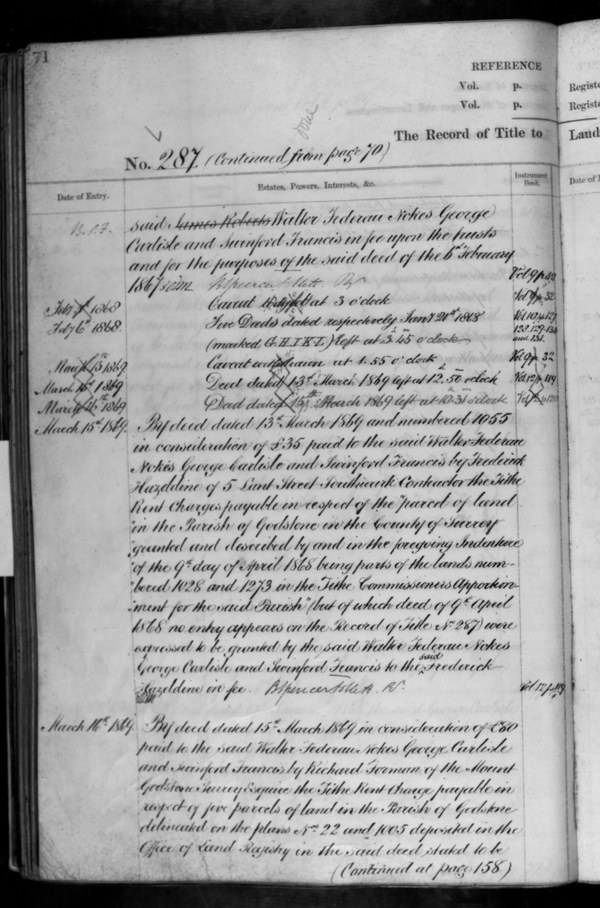 71
REFERENCE
Vol. p.
Vol. p.
Registe
Registe
The Record of Title to
Land
No. 287. (Continued from page 70)
Date of Entry.
Estates, Powers, Interests, &c.
Instrument Book.
Date of
said James Roberts Walter Federau Nokes George
Carlisle and Swinford Francis in fee upon the trusts
and for the purposes of the said deed of the 6th February
1867
Caveat lodged at 3 o'clock
Feby 1868
Feby 6th 1868
Five Deeds dated respectively Jany 21st 1868
(marked G.H.I.K.L.) left at 3.45 o'clock
Caveat withdrawn at 1.55 o'clock
Vol 9 p. 32
March 15th 1869
Deed dated 13th March 1869 left at 12.50 o'clock
Vol 12 p. 119
March 16th 1869
Deed dated 15th March 1869 left at 10.31 o'clock
March 15th 1869
By deed dated 13th March 1869 and numbered 1055
in consideration of £35 paid to the said Walter Federau
Nokes George Carlisle and Swinford Francis by Frederick
Hazeldine of 5 Lant Street Southwark Contractor the Tithe
Rent Charges payable in respect of the "parcel of land
"in the Parish of Godstone in the County of Surrey
"granted and described by and in the foregoing Indenture
"of the 9th day of April 1868 being parts of the lands num-
"bered 1028 and 1273 in the Tithe Commissioners Apportion-
"ment for the said Parish" (but of which deed of 9th April
1868 no entry appears on the Record of Title No 287) were
expressed to be granted by the said Walter Federau Nokes
George Carlisle and Swinford Francis to the said Frederick
Hazeldine in fee.
Vol 12 p. 119
March 16th 1869
By deed dated 15th March 1869 in consideration of £80
paid to the said Walter Federau Nokes George Carlisle
and Swinford Francis by Richard Forman of the Mount
Godstone Surrey Esquire the Tithe Rent Charge payable in
respect of five parcels of land in the Parish of Godstone
delineated on the plans Nos 22 and 1005 deposited in the
Office of Land Registry in the said deed stated to be
(Continued at page 158)